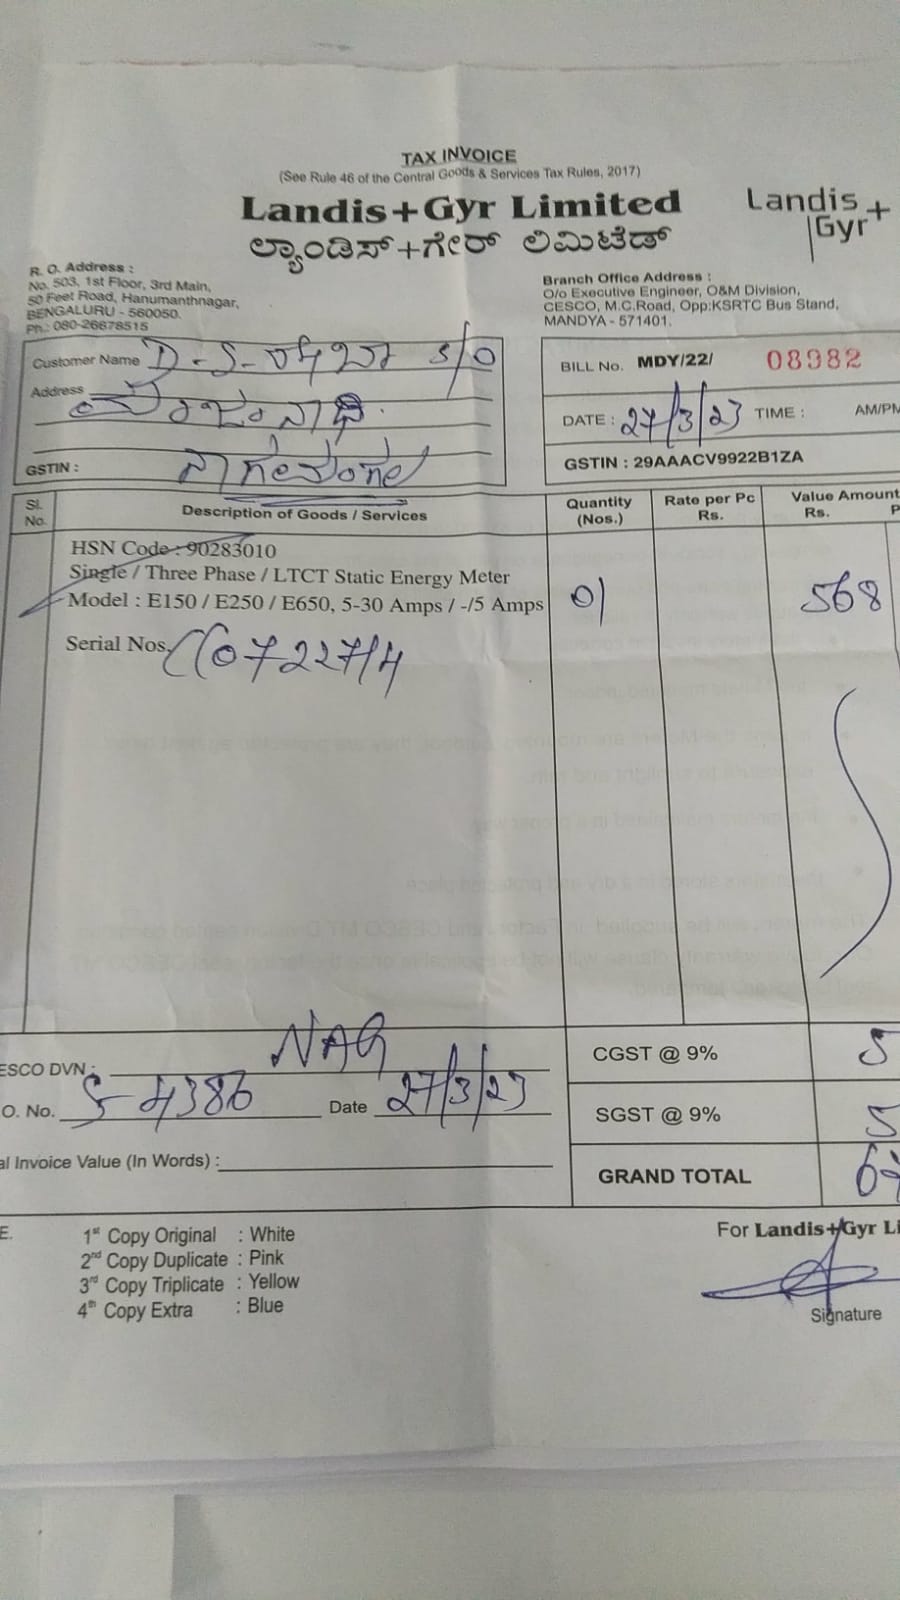 TAX INVOICE
(See Rule 46 of the Central Goods & Services Tax Rules, 2017)
Landis+Gyr Limited
ಲ್ಯಾಂಡಿಸ್+ಗೇರ್ ಲಿಮಿಟೆಡ್
Landis+
Gyr
R. O. Address :
No. 503, 1st Floor, 3rd Main,
50 Feet Road, Hanumanthnagar,
BENGALURU - 560050.
Ph.: 080-26678515
Branch Office Address :
O/o Executive Engineer, O&M Division,
CESCO, M.C.Road, Opp:KSRTC Bus Stand,
MANDYA - 571401.
Customer Name D-S- S/O
Address
GSTIN : ನಾಗಮಂಗಲ
BILL No. MDY/22/ 08982
DATE : 27/3/23 TIME : AM/PM
GSTIN : 29AAACV9922B1ZA
Sl. No. Description of Goods / Services Quantity (Nos.) Rate per Pc Rs. Value Amount Rs. P
HSN Code : 90283010
Single / Three Phase / LTCT Static Energy Meter
Model : E150 / E250 / E650, 5-30 Amps / -/5 Amps 01 568
Serial Nos.
ESCO DVN : NAG
O. No. 4386 Date 27/3/23
al Invoice Value (In Words) :
CGST @ 9% 5
SGST @ 9% 5
GRAND TOTAL
E. 1st Copy Original : White
2nd Copy Duplicate : Pink
3rd Copy Triplicate : Yellow
4th Copy Extra : Blue
For Landis+Gyr Li
Signature